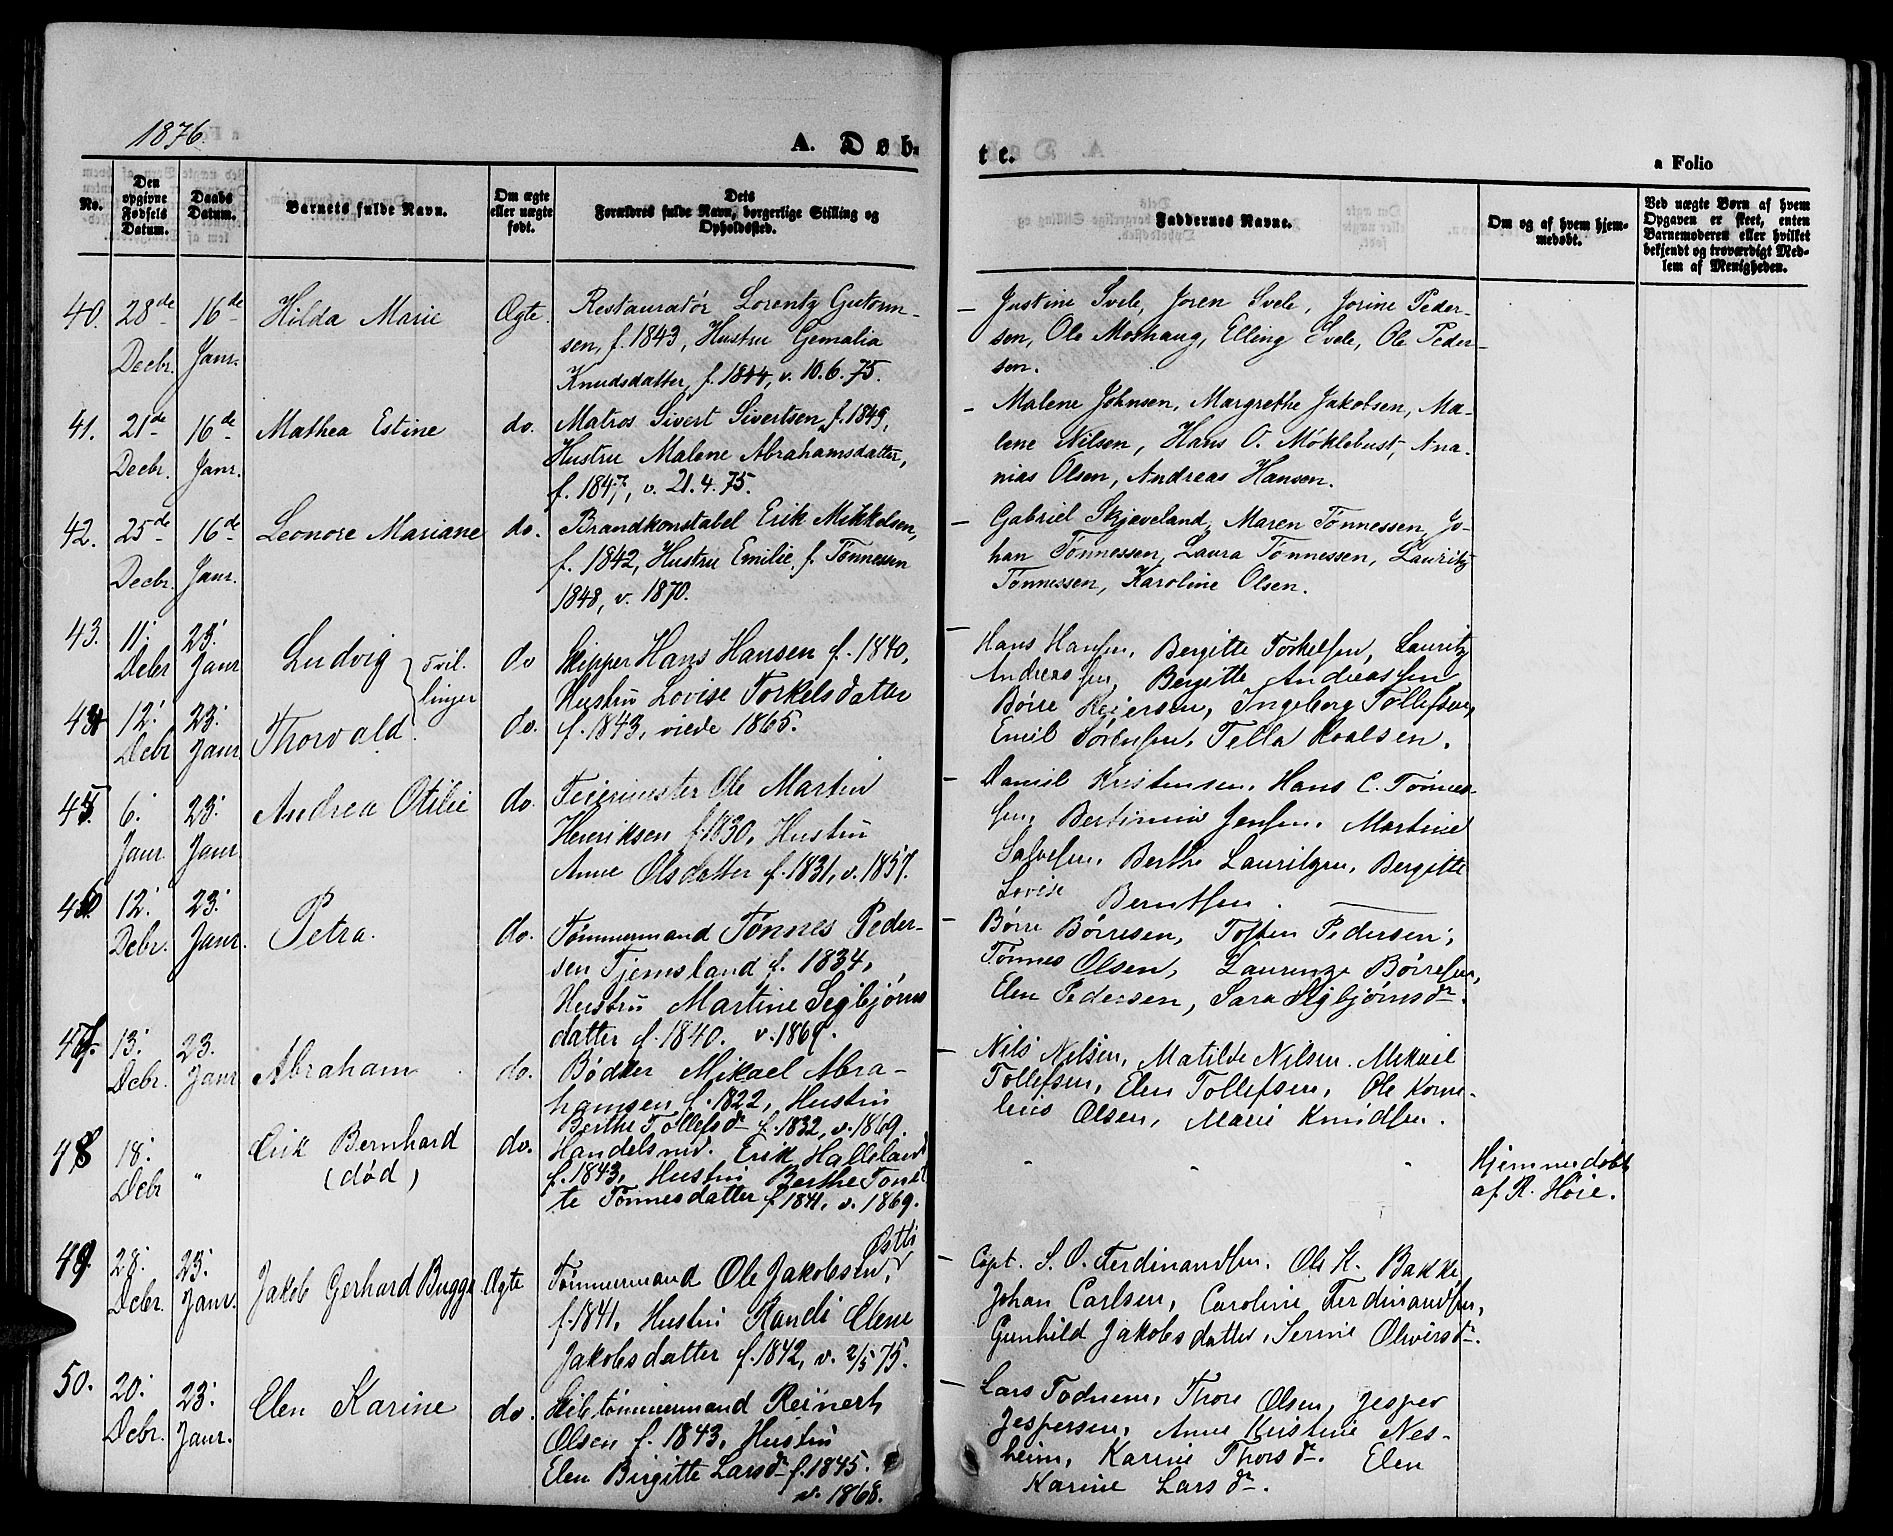 1876.
A. Døb-
te.
a Folio
No.
Den opgivne Fødsels Datum.
Daabs Datum.
Barnets fulde Navn.
Om ægte eller uægte født.
Dets Forældres fulde Navn, borgerlige Stilling og Opholdssted.
Faddernes Navne.
Om og af hvem hjemmedøbt.
Ved uægte Børn af hvem Opgaven er skeet, enten Barnemoderen eller hvilket bekjendt og troværdigt Medlem af Menigheden.
40. 28de Decbr. 16de Janr. Hilda Marie Ægte.
Restauratør Lorentz Gutorm-
sen, f. 1843, Hustru Gemalia
Knudsdatter, f. 1844, v. 10.6.75.
- Justine Svele, Joren Svele, Jorine Peder-
sen, Ole Moshaug, Elling Svele, Ole Peder-
sen.
41. 21de Decbr. 16de Janr. Mathea Estine do.
Matros Sivert Sivertsen, f. 1849,
Hustru Malene Abrahamsdatter,
f. 1847, v. 21.4.75.
- Malene Johnsen, Margrethe Jakobsen, Ma-
lene Nilsen, Hans O. Møklebust, Ana-
nias Olsen, Andreas Hansen.
42. 25de Decbr. 16de Janr. Leonore Mariane do.
Brandkonstabel Erik Mikkelsen,
f. 1842, Hustru Emilie, f. Tønnessen
1848, v. 1870.
- Gabriel Skjæveland, Maren Tønnessen, Jo-
han Tønnessen, Laura Tønnessen, Lauritz
Tønnessen, Karoline Olsen.
43. 11. Debr 23. Janr Ludvig Tvil-
linger do
Skipper Hans Hansen f. 1840,
Hustru Lovise Torkelsdatter
f. 1843, viede 1865.
44 12. Debr 23. Janr Thorvald. do.
- Hans Hansen, Bergitte Torkelsen, Lauritz
Andreassen, Bergitte Andreassen
Børre Reiersen, Ingeborg Tollefsen,
Emil Sørensen, Tella Roalsen.
45. 6. Janr 23. Janr Andrea Otilie do.
Feiermester Ole Martin
Henriksen f. 1830, Hustru
Anne Olsdatter f. 1831, v. 1857.
- Daniel Kristensen, Hans C. Tønnes-
sen, Bertinius Jensen, Martine
Salvesen, Berthe Lauritzen, Bergitte
Lovise Berntsen.
46. 12. Debr. 23. Janr. Petra. do.
Tømmermand Tønnes Peder-
sen Tjemsland f. 1834,
Hustru Martine Segbjørns
datter f. 1840. v. 1869.
- Børre Børresen, Tosten Pedersen,
Tønnes Olsen, Laurenze Børresen,
Elen Pedersen, Sara Segbjørnsdr.
47. 13. Debr. 23. Janr Abraham do.
Bødker Mikael Abra-
hamsen f. 1822, Hustru
Berthe Tollefsdr f. 1832, v. 1869.
- Nils Nilsen, Matilde Nilsen. Mikael
Tollefsen, Elen Tollefsen, Ole Korne-
lius Olsen, Marie Knudsen.
48 18. Debr " Erik Bernhard
(død) do.
Handelsmd. Erik Halleland
f. 1843, Hustru Berthe Tonet
te Tønnesdatter f. 1841, v. 1869.
" " "
Hjemmedøbt
af R. Høie.
49. 28. Debr. 23. Janr. Jakob Gerhard Bugge Ægte
Østbø
Tømmermand Ole Jakobsen,
f. 1841, Hustru Randi Elene
Jakobsdatter f. 1842, v. 2/5 75.
- Capt. S. O. Ferdinandsen, Ole K. Bakke
Johan Carlsen, Caroline Ferdinandsen,
Gunhild Jakobsdatter, Serine Oliversdr.
50. 20. Debr. 23. Janr. Elen Karine do.
Skibstømmermand Reinert
Olsen f. 1843, Hustru
Elen Birgitte Larsdr f. 1845.
v. 1868.
- Lars Todnem, Thore Olsen, Jesper
Jespersen, Anne Kirstine Nes-
heim, Karine Thorsdr. Elen
Karine Larsdr.